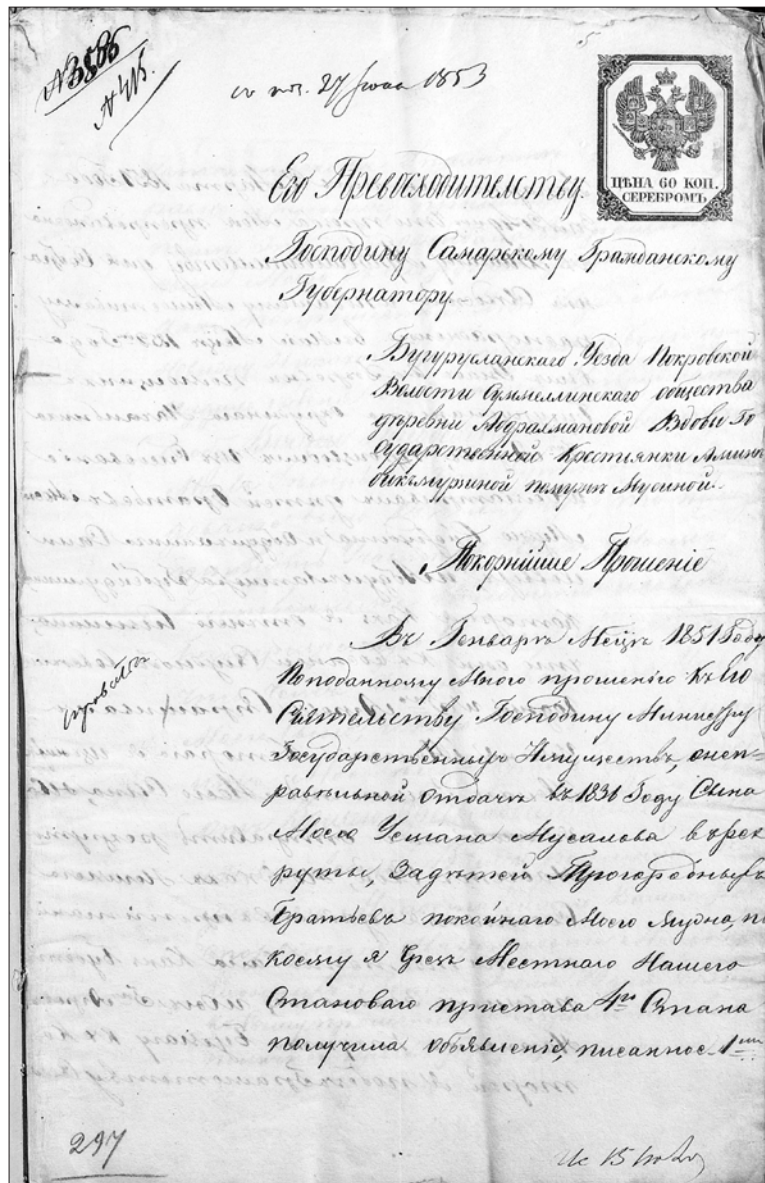 № 3586
№ 415.
27 Июня 1853
ЦѢНА 60 КОП.
СЕРЕБРОМЪ
Его Превосходительству.
Господину Самарскому Гражданскому
Губернатору
Бугурусланскаго Уезда Покровской
Волости Суммеллинскаго общества
деревни Абдралмановой Вдовы Го
сударственной Крестьянки
Мусиной.
Покорнѣйшее Прошеніе
Въ Генварѣ Месцѣ 1851 Году
Поподанному Мною прошенію Къ Его
Сіятельству Господину Министру
Государственныхъ Имуществъ, онеп-
равильной Отдачѣ въ 1836 Году Сына
Моего Усмана Мусалова врек
руты, Задѣтей Троюродныхъ
Братьевъ покойнаго Моего Мужа, по
коему я Чрезъ Местнаго Нашего
Становаго пристава 4го Стана
получила объявленіе, писанное 1
297